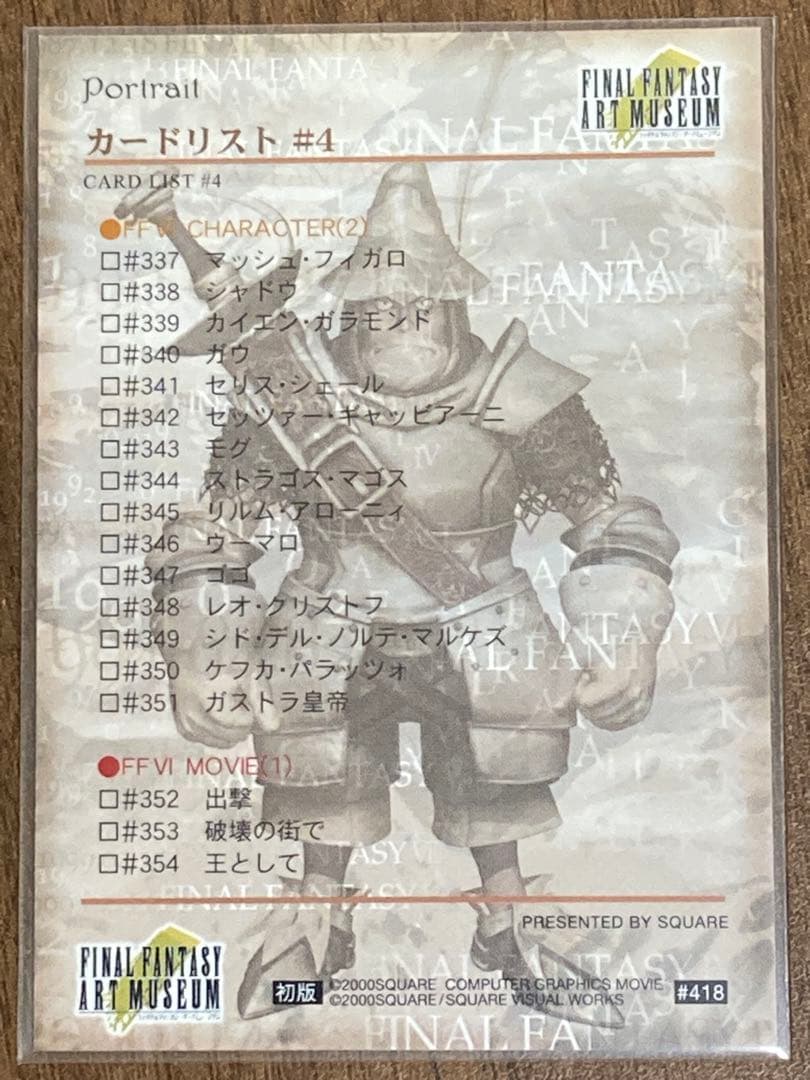 Portrait
FINAL FANTASY
ART MUSEUM
カードリスト #4
CARD LIST #4
●FFVI CHARACTER(2)
□#337 マッシュ・フィガロ
□#338 シャドウ
□#339 カイエン・ガラモンド
□#340 ガウ
□#341 セリス・シェール
□#342 セッツァー・ギャッビアーニ
□#343 モグ
□#344 ストラゴス・マゴス
□#345 リルム・アローニィ
□#346 ウーマロ
□#347 ゴゴ
□#348 レオ・クリストフ
□#349 シド・デル・ノルテ・マルケズ
□#350 ケフカ・パラッツォ
□#351 ガストラ皇帝
●FFVI MOVIE(1)
□#352 出撃
□#353 破壊の街で
□#354 王として
PRESENTED BY SQUARE
FINAL FANTASY
ART MUSEUM
初版
©2000SQUARE COMPUTER GRAPHICS MOVIE
©2000SQUARE/SQUARE VISUAL WORKS
#418